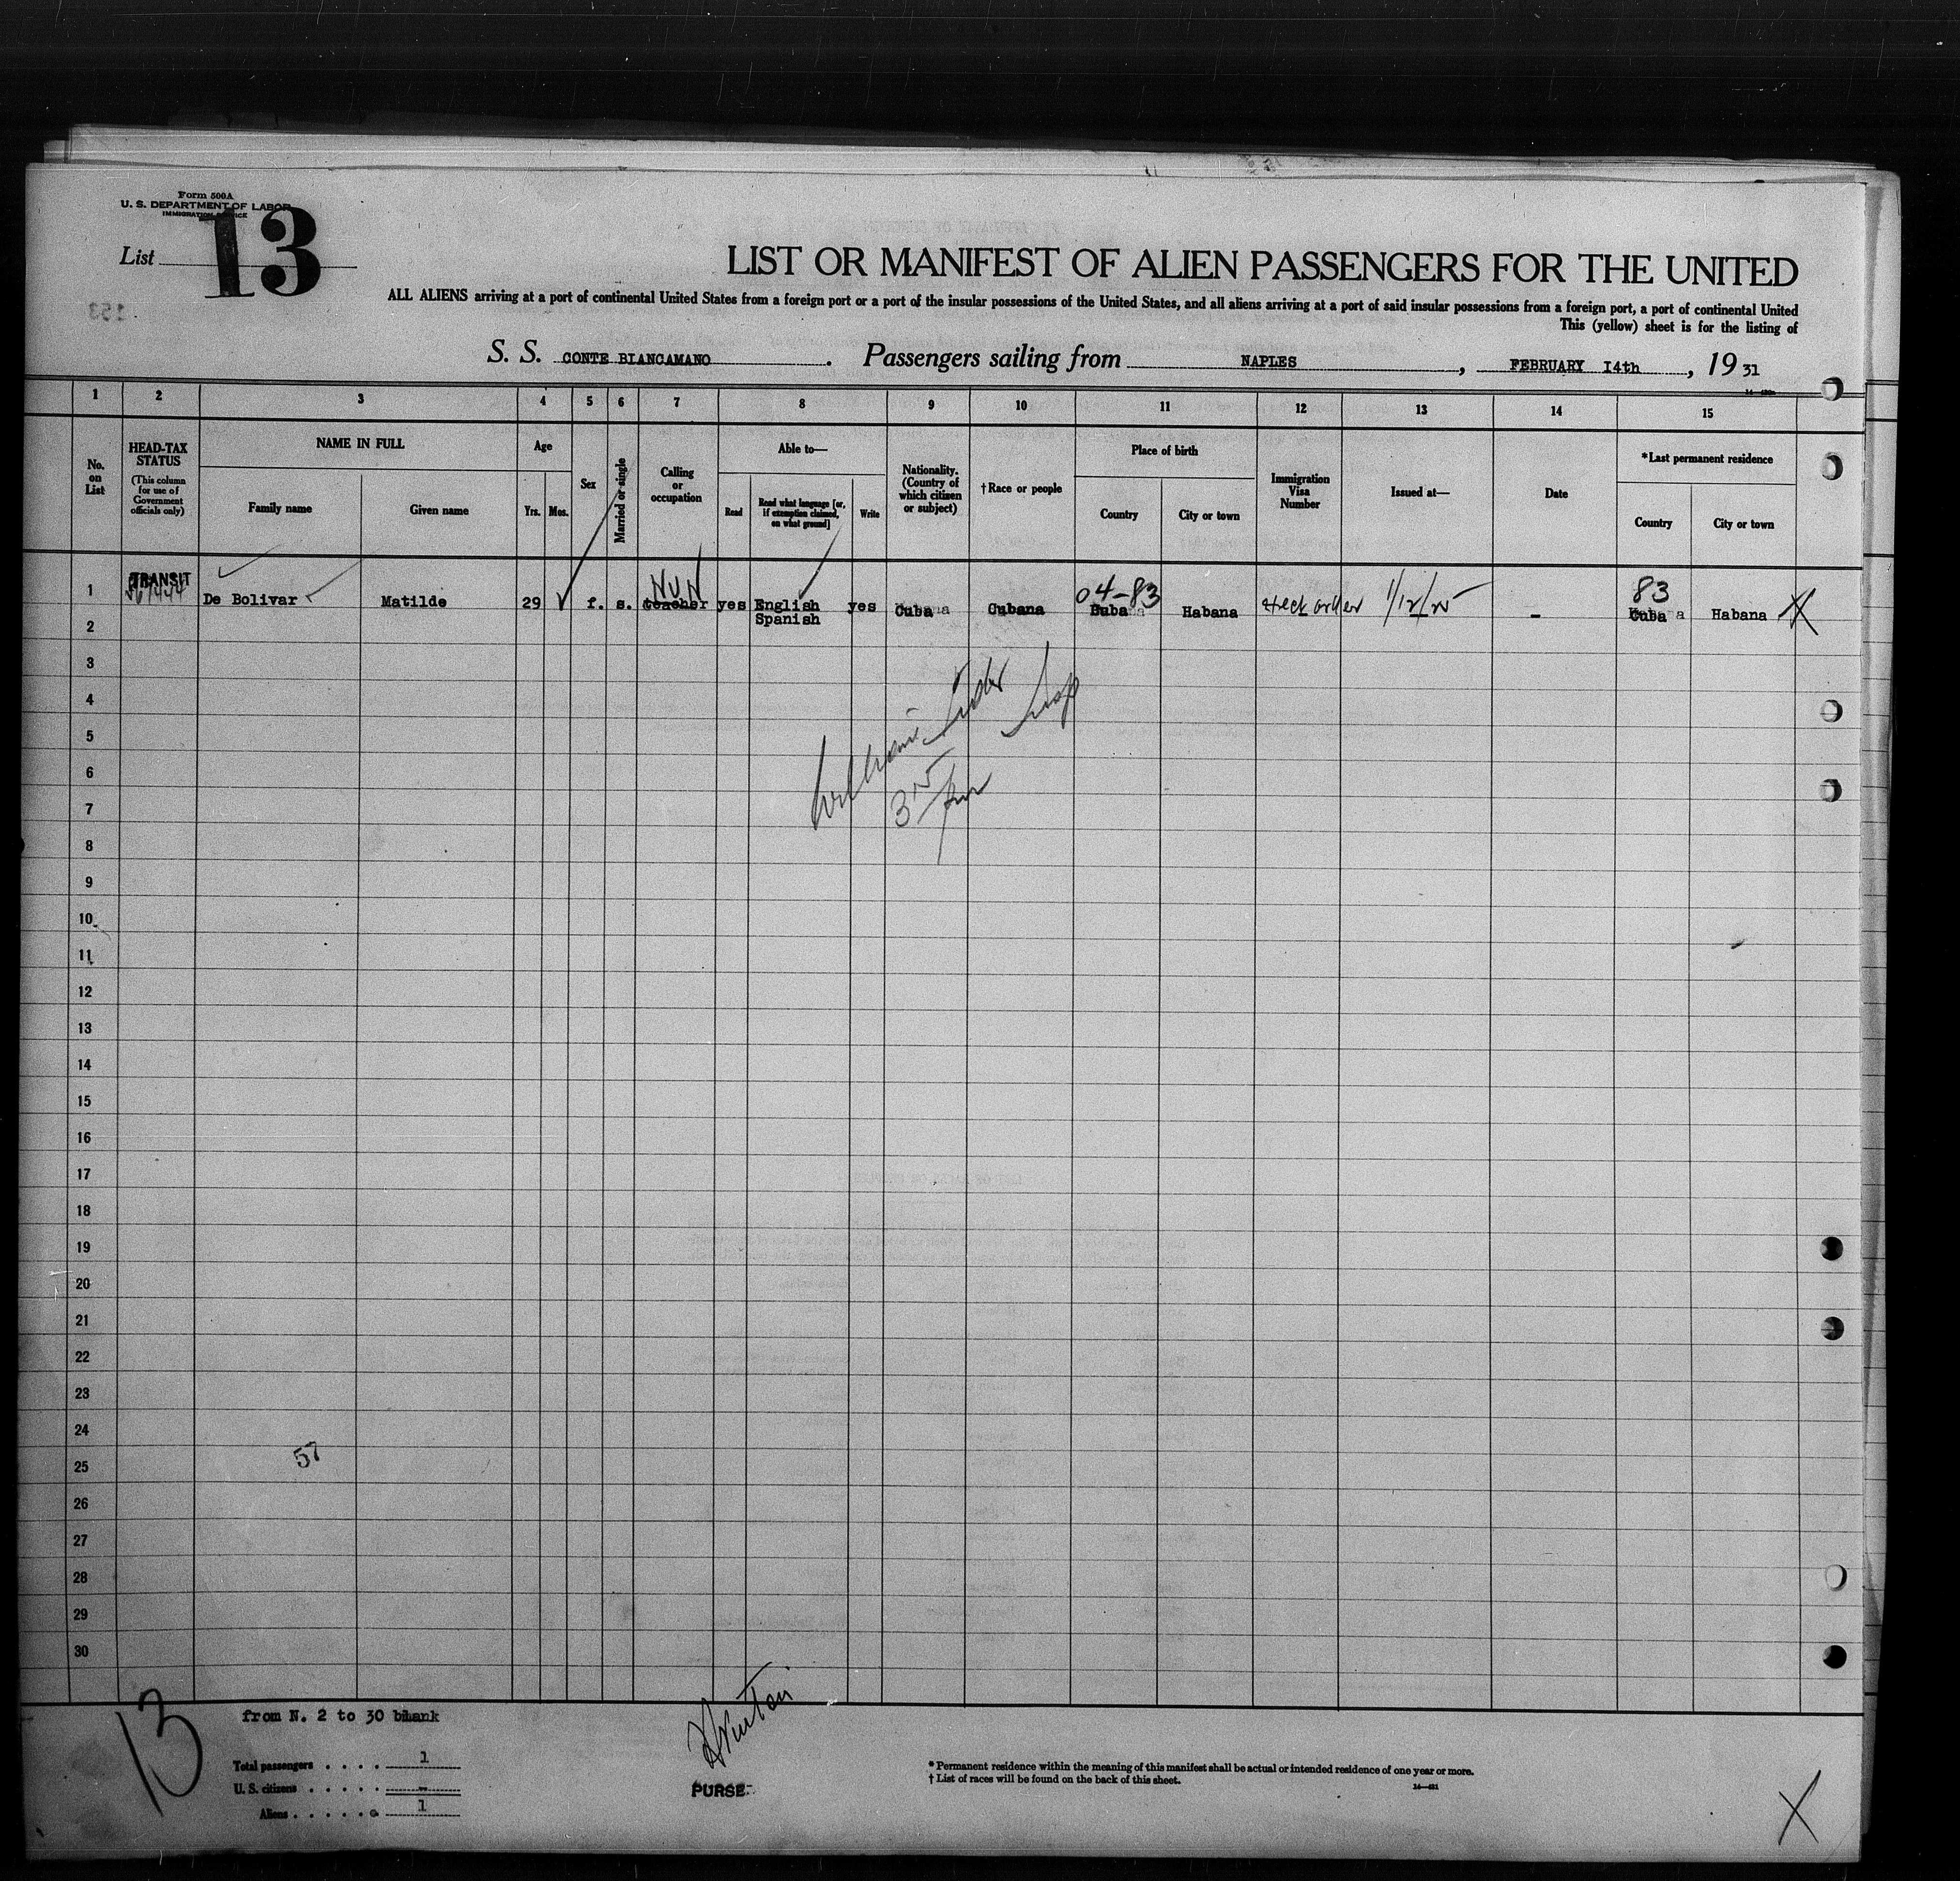 Form 500A
U. S. DEPARTMENT OF LABOR
IMMIGRATION SERVICE
List 13
153
LIST OR MANIFEST OF ALIEN PASSENGERS FOR THE UNITED
ALL ALIENS arriving at a port of continental United States from a foreign port or a port of the insular possessions of the United States, and all aliens arriving at a port of said insular possessions from a foreign port, a port of continental United
This (yellow) sheet is for the listing of
S. S. CONTE BIANCAMANO. Passengers sailing from NAPLES, FEBRUARY 14th, 1931
1 2 3 4 5 6 7 8 9 10 11 12 13 14 15
No. on List
HEAD-TAX STATUS
(This column for use of Government officials only)
NAME IN FULL
Family name
Given name
Age
Yrs. Mos.
Sex
Married or single
Calling or occupation
Able to—
Read
Read what language [or, if exemption claimed, on what ground]
Write
Nationality. (Country of which citizen or subject)
† Race or people
Place of birth
Country
City or town
Immigration Visa Number
Issued at—
Date
*Last permanent residence
Country
City or town
NUN
04-83
83
1 TRANSIT De Bolivar Matilde 29 f. s. teacher yes English yes Cuba Cubana Cuba Habana 1/12/25 - Cuba Habana X
Spanish
2
3
4
5
6
7
8
9
10
11
12
13
14
15
16
17
18
19
20
21
22
23
24
57
25
26
27
28
29
30
13
from N. 2 to 30 blank
Total passengers . . . . 1
U. S. citizens . . . . . -
Aliens . . . . . . 1
PURSE
* Permanent residence within the meaning of this manifest shall be actual or intended residence of one year or more.
† List of races will be found on the back of this sheet.
X